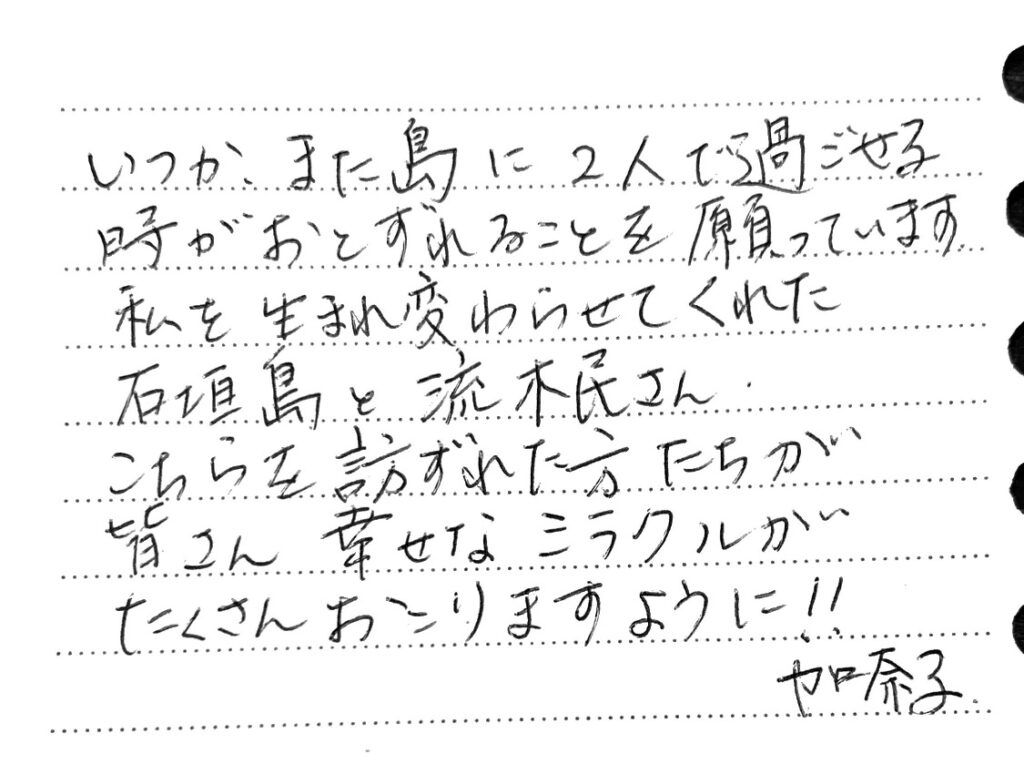 いつか、また島に2人で過ごせる
時がおとずれることを願っています
私を生まれ変わらせてくれた
石垣島と流木民さん.
こちらを訪ずれた方たちが
皆さん幸せなミラクルが
たくさんおこりますように!!
加奈子.